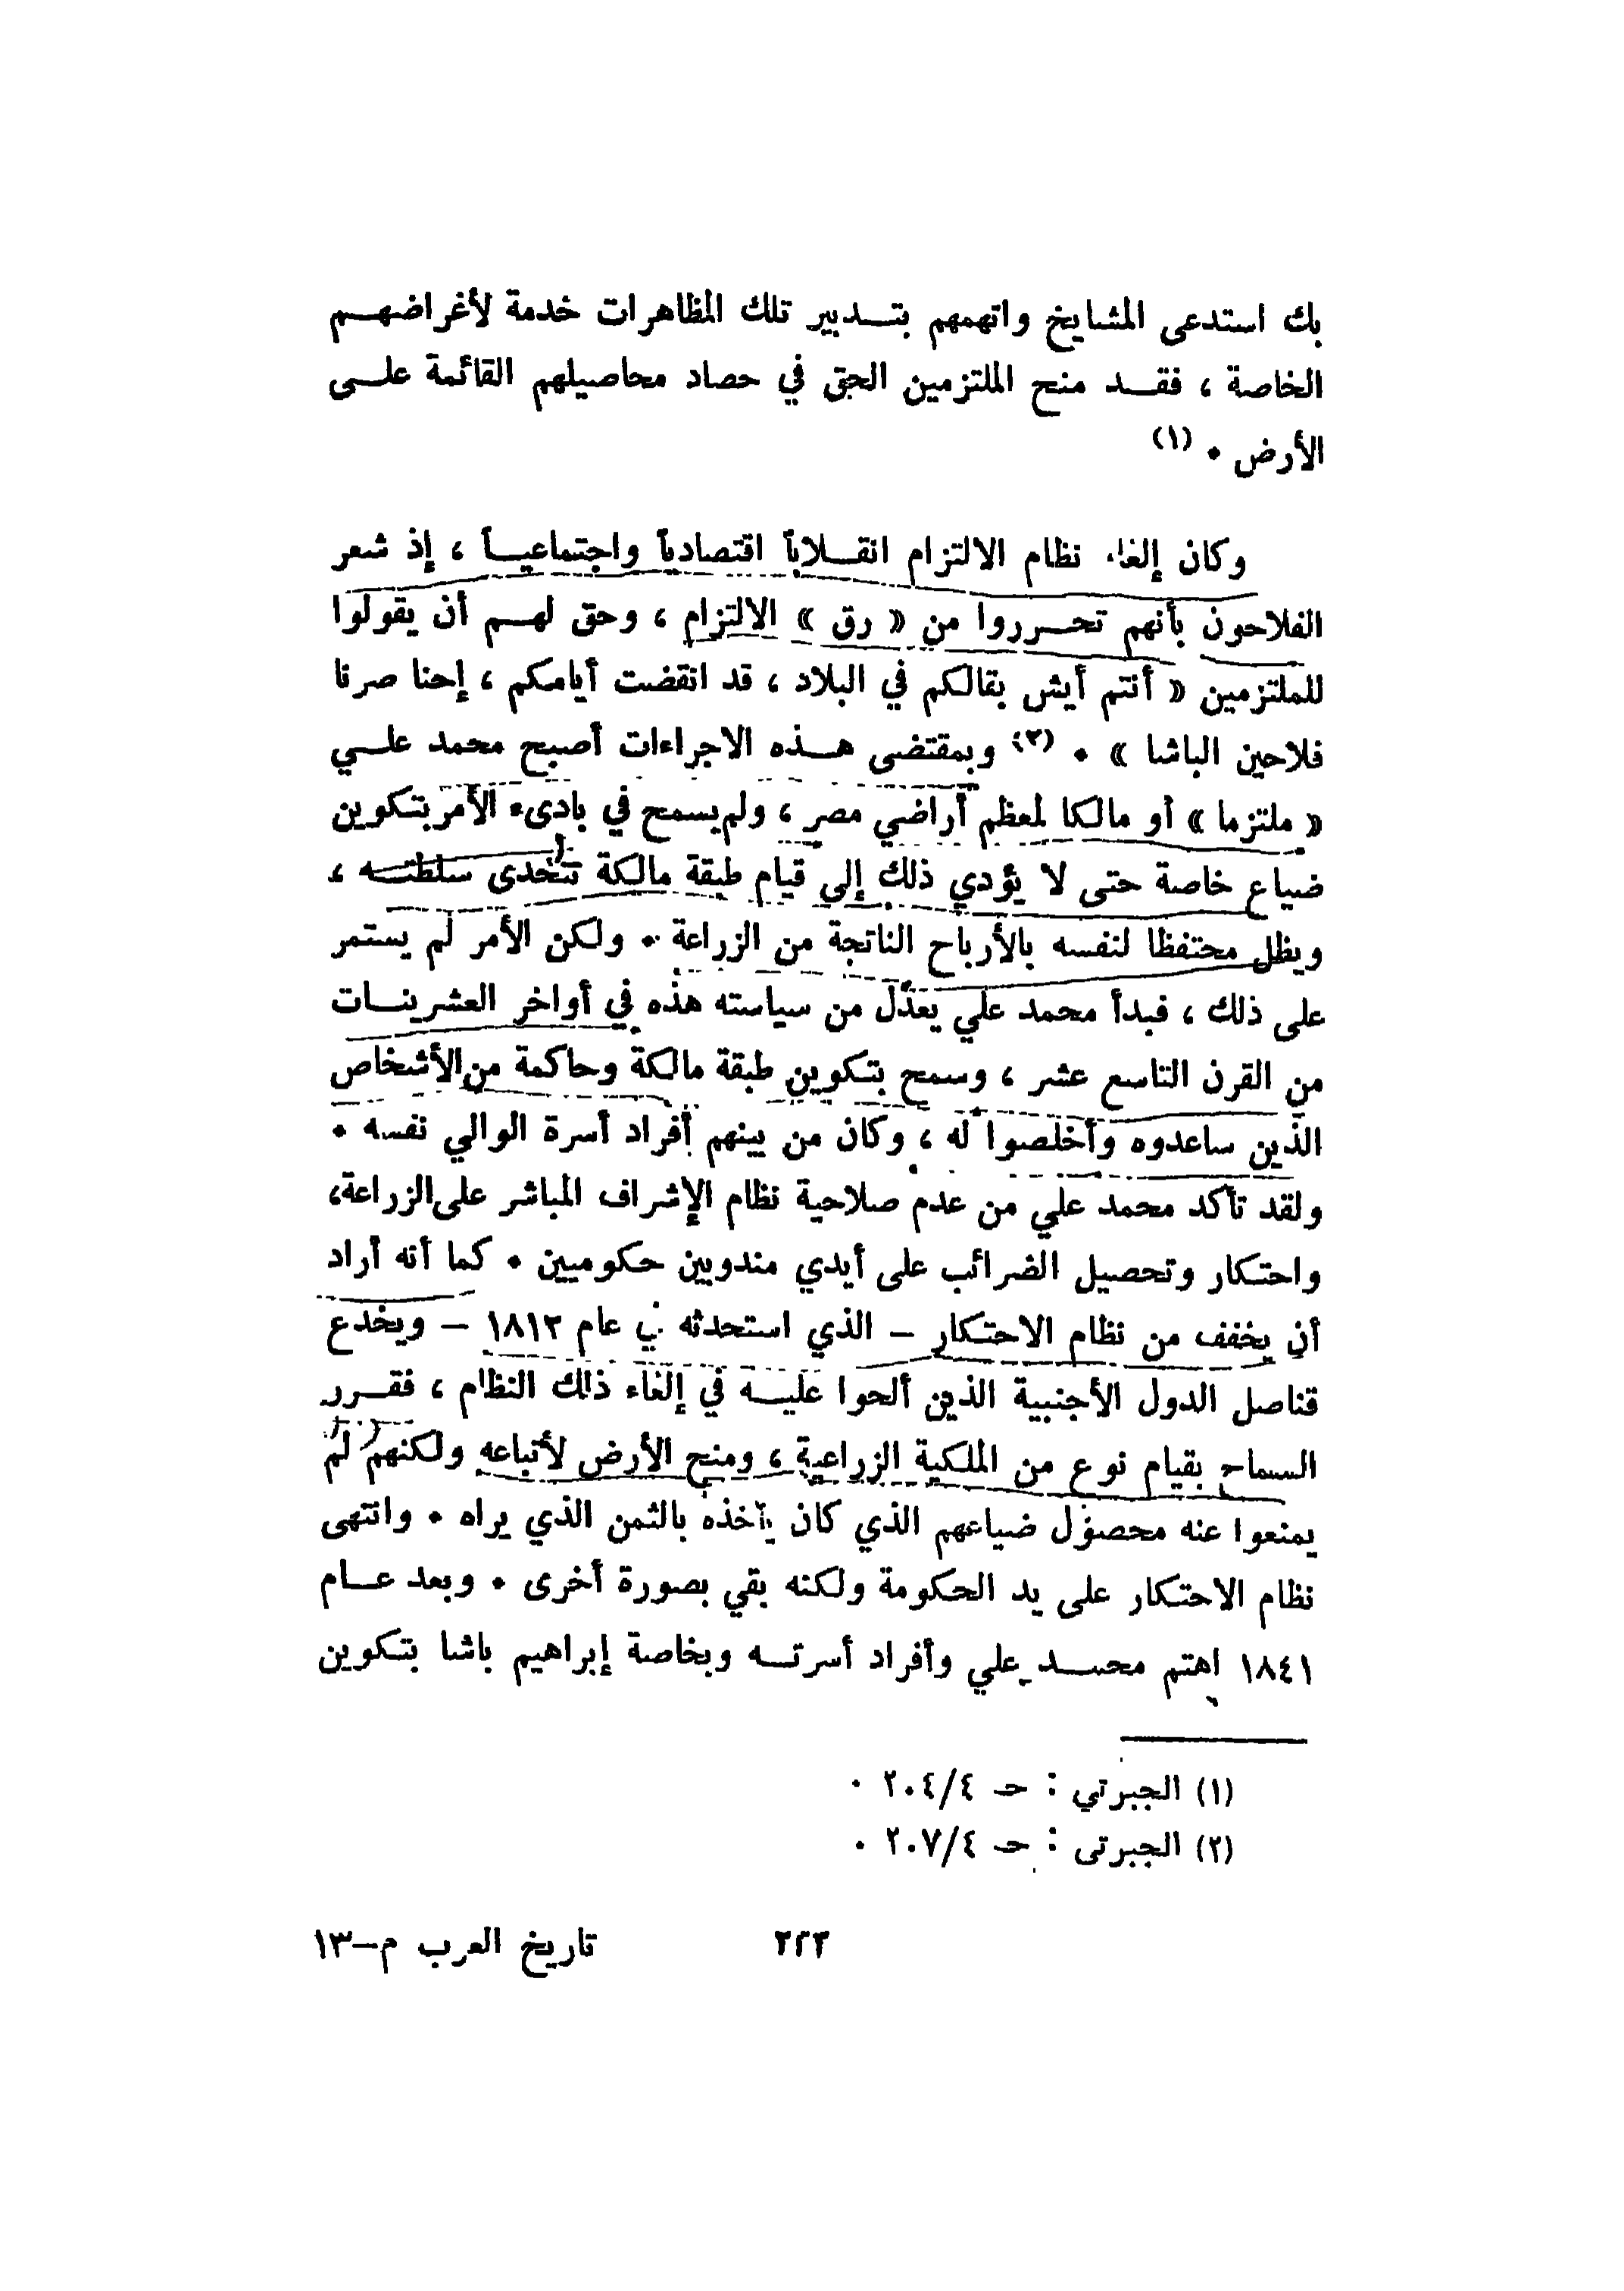 بك استدعى المشايخ واتهمهم بتدبير تلك المظاهرات خدمة لأغراضهم
الخاصة ، فقد منح الملتزمين الحق في حصاد محاصيلهم القائمة على
الأرض . (١)
وكان إلغاء نظام الالتزام انقلاباً اقتصادياً واجتماعياً ، إذ شعر
الفلاحون بأنهم تحرروا من « رق » الالتزام ، وحق لهم أن يقولوا
للملتزمين « أنتم أيش بقالكم في البلاد ، قد انقضت أيامكم ، إحنا صرنا
فلاحين الباشا » . (٢) وبمقتضى هذه الاجراءات أصبح محمد علي
« ملتزما » أو مالكا لمعظم أراضي مصر ، ولم يسمح في بادىء الأمر بتكوين
ضياع خاصة حتى لا يؤدي ذلك إلى قيام طبقة مالكة تتحدى سلطته ،
ويظل محتفظا لنفسه بالأرباح الناتجة من الزراعة . ولكن الأمر لم يستمر
على ذلك ، فبدأ محمد علي يعدّل من سياسته هذه في أواخر العشرينات
من القرن التاسع عشر ، وسمح بتكوين طبقة مالكة وحاكمة من الأشخاص
الذين ساعدوه وأخلصوا له ، وكان من بينهم أفراد أسرة الوالي نفسه .
ولقد تأكد محمد علي من عدم صلاحية نظام الإشراف المباشر على الزراعة،
واحتكار وتحصيل الضرائب على أيدي مندوبين حكوميين . كما أنه أراد
أن يخفف من نظام الاحتكار – الذي استحدثه في عام ١٨١٢ – ويخدع
قناصل الدول الأجنبية الذين ألحوا عليه في إلغاء ذلك النظام ، فقرر
السماح بقيام نوع من الملكية الزراعية ، ومنح الأرض لأتباعه ولكنهم لم
يمنعوا عنه محصول ضياعهم الذي كان يأخذه بالثمن الذي يراه . وانتهى
نظام الاحتكار على يد الحكومة ولكنه بقي بصورة أخرى . وبعد عام
١٨٤١ اهتم محمد علي وأفراد أسرته وبخاصة إبراهيم باشا بتكوين
(١) الجبرتي : حـ ٢٠٤/٤ .
(٢) الجبرتى : حـ ٢٠٧/٤ .
٢٢٣
تاريخ العرب م–١٣